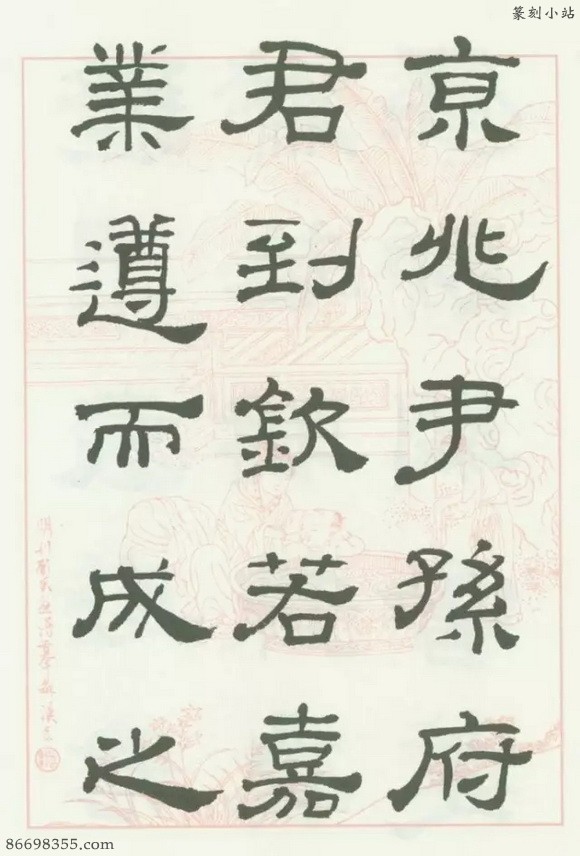 篆刻小站
京兆尹孫府
君到欽若嘉
業遵而成之
86698355.com